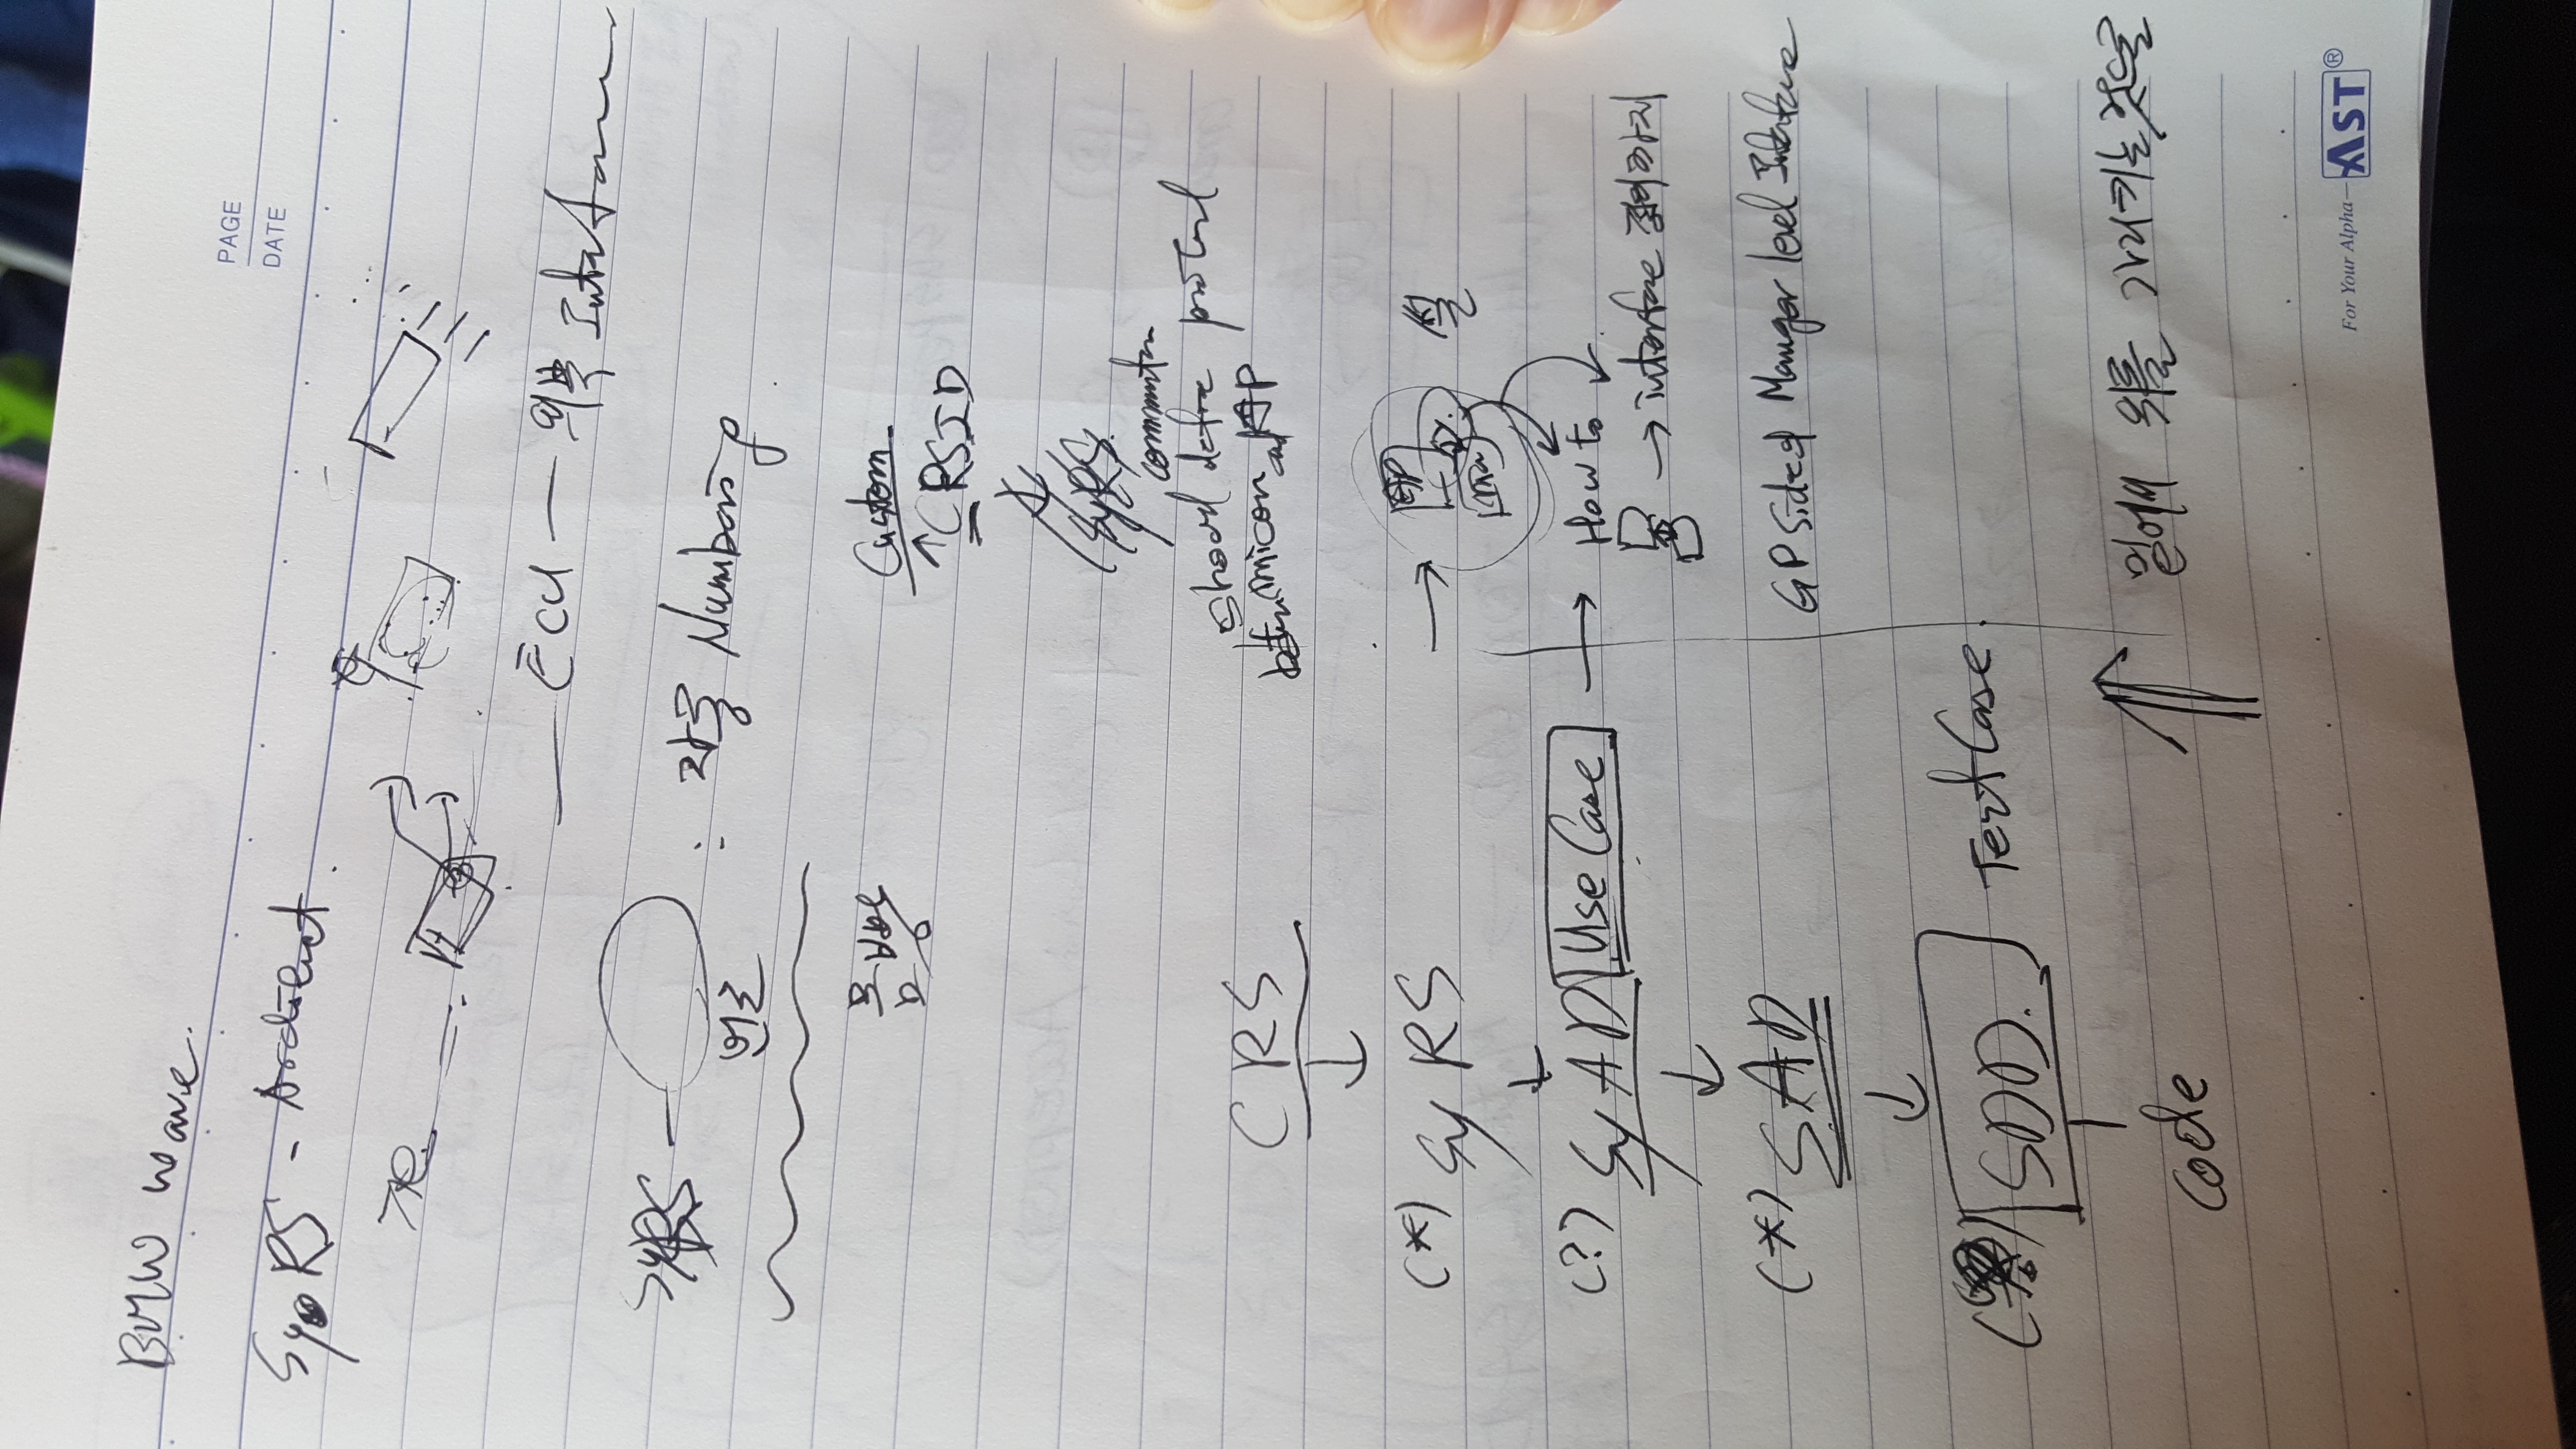 BMW wave.
PAGE
DATE
SyRS - Architect.
ECU — 외부 Interface
SyRS —
: 자동 Numbering
Custom
↑ CRSID
SyRS.
should define protocol
micon and AP
CRS
↓
(*) SyRS →
↓
(?) SyAD Use Case → How to
→ interface 정의까지
↓
(*) SAD
GP Side의 Manager level Interface
↓
SDD. Test Case.
code
밑에서 위를 가리키는 것으로
For Your Alpha— AST®